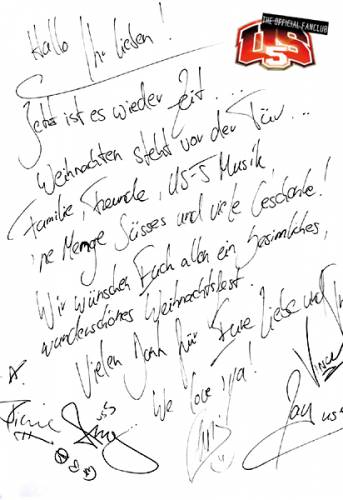 THE OFFICIAL FANCLUB
US5
Hallo Ihr Lieben!
Jetzt ist es wieder Zeit....
Weihnachten steht vor der Tür...
Familie, Freunde, US-5 Musik,
'ne Menge Süsses und viele Geschenke!
Wir wünschen Euch allen ein besinnliches,
wunderschönes Weihnachtsfest.
Vielen Dank für Eure Liebe und
We love y'all!
Richie
Jay US5
Vince
Chris